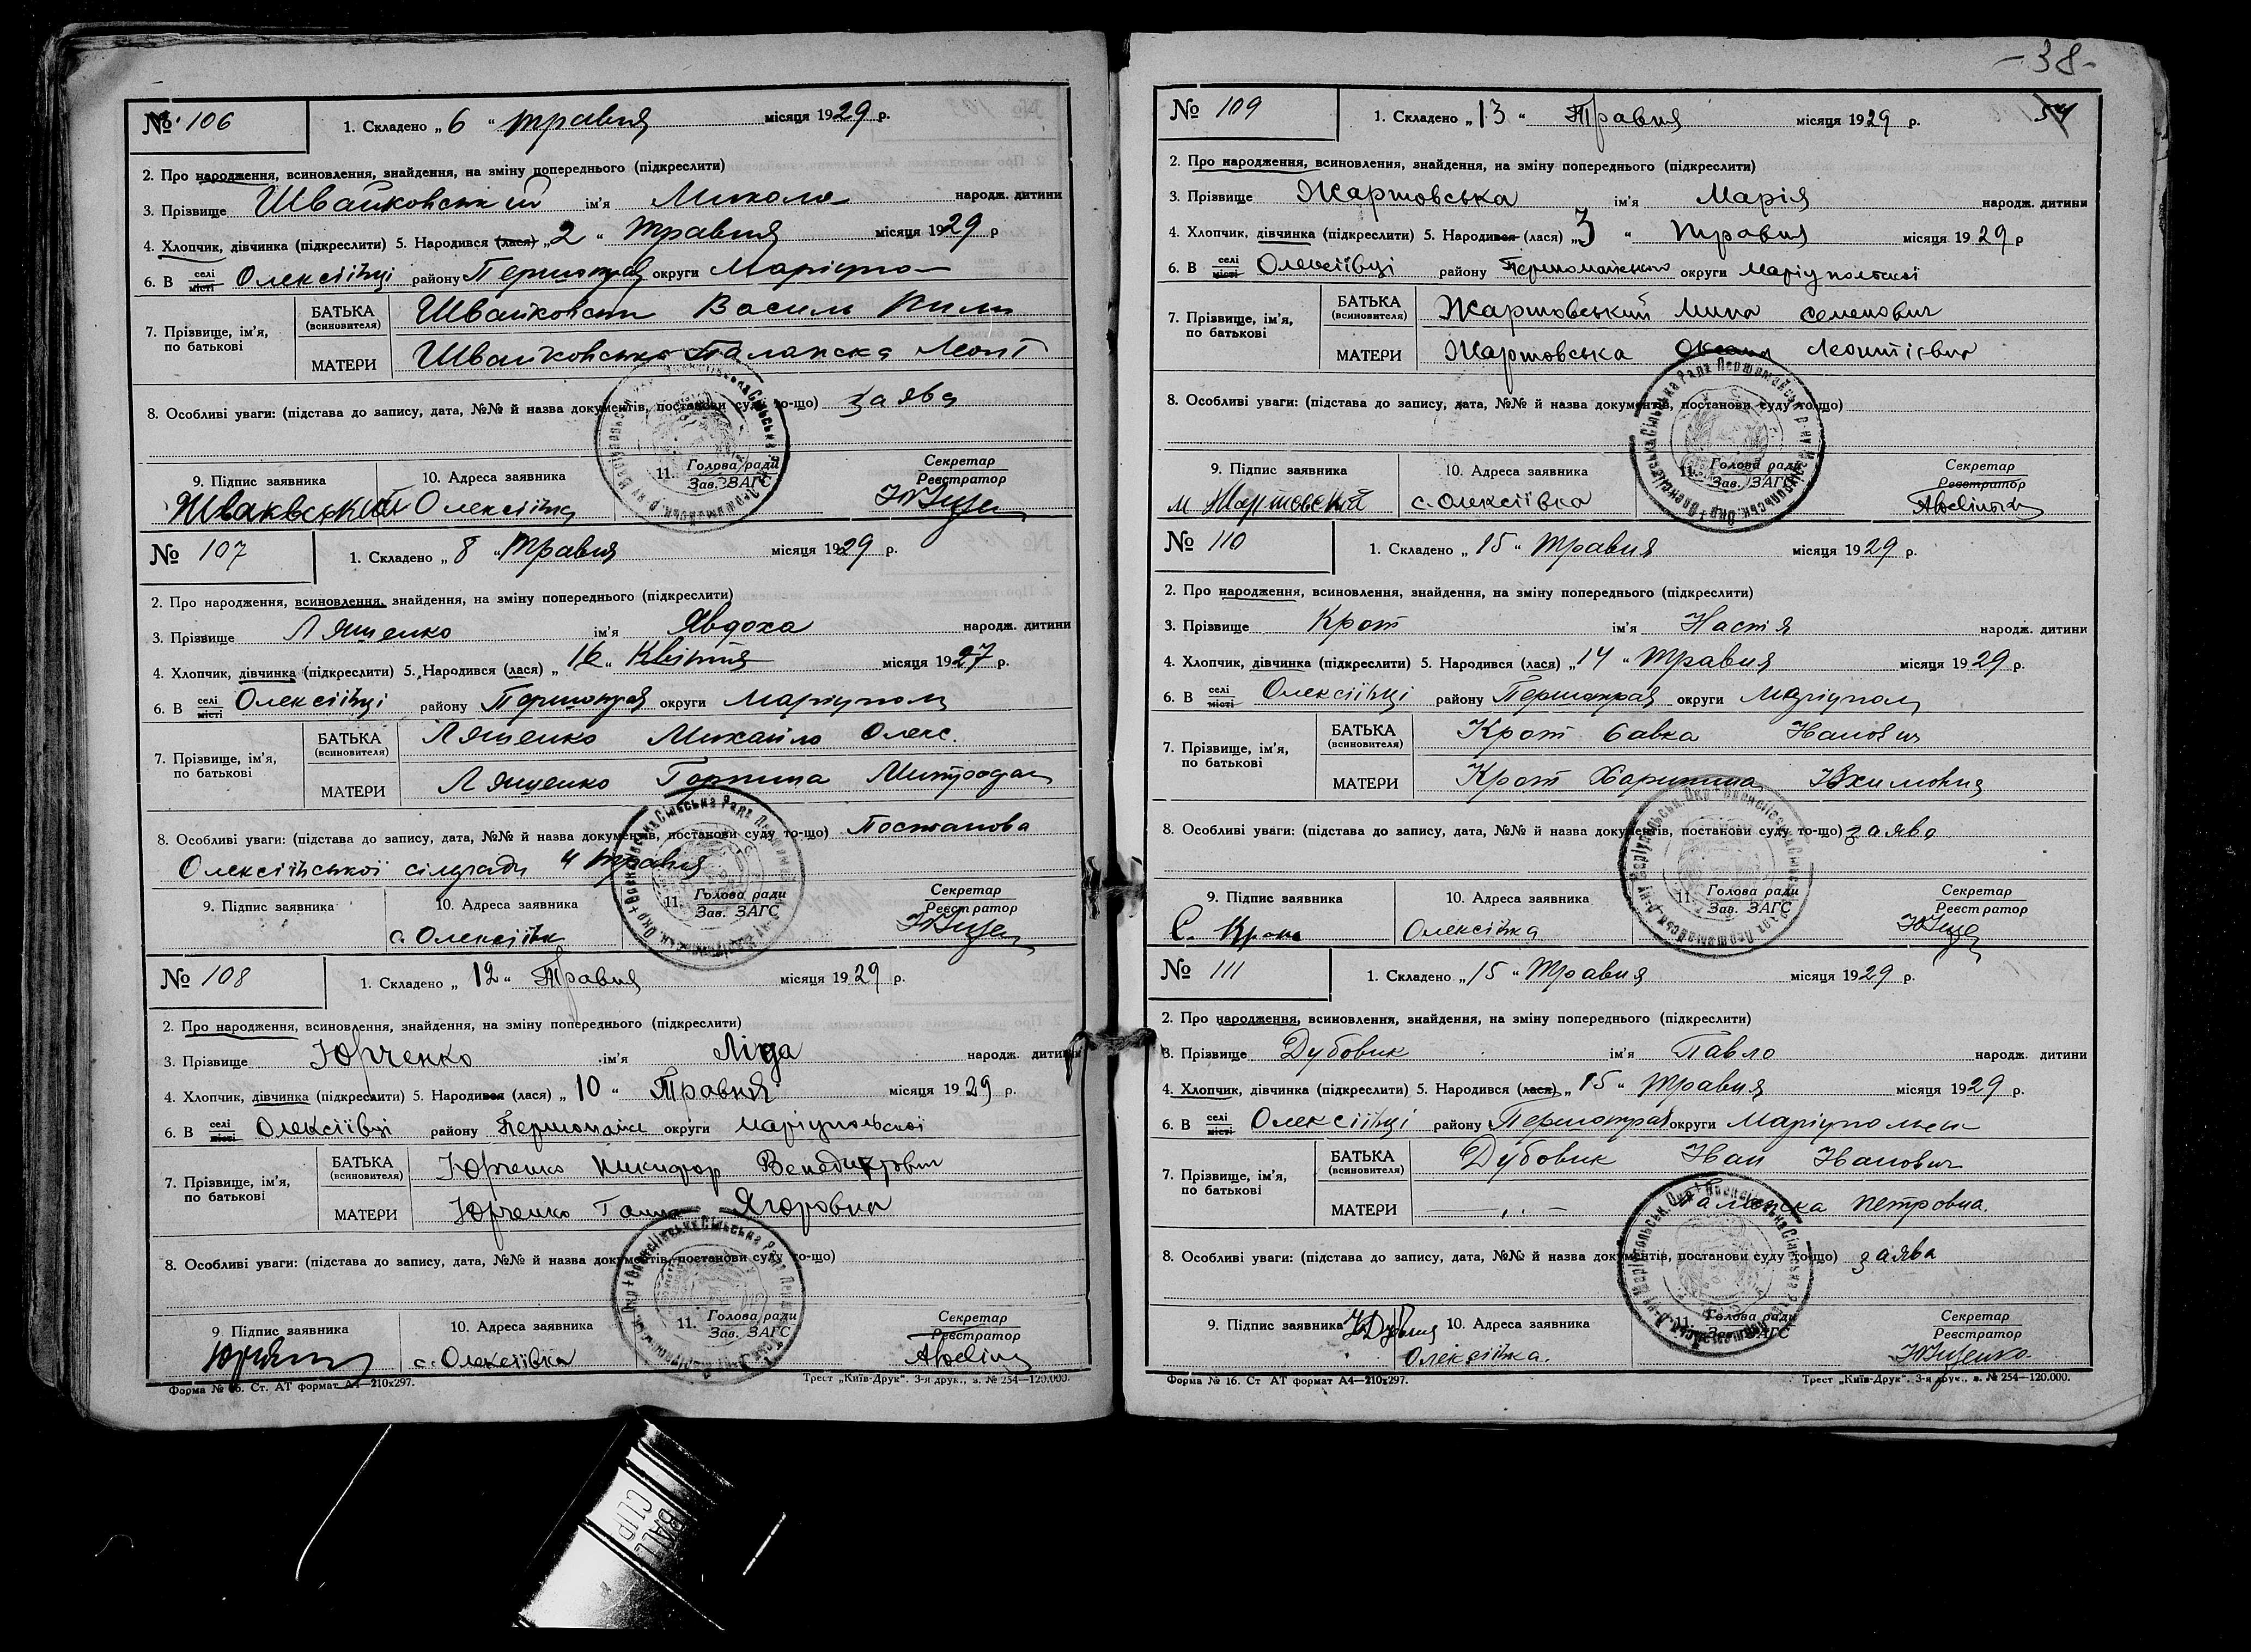 № 106
1. Складено „ 6 “ травня місяця 1929 р.
2. Про народження, всиновлення, знайдення, на зміну попереднього (підкреслити)
3. Прізвище Швайковський ім'я Микола народж. дитини
4. Хлопчик, дівчинка (підкреслити) 5. Народився (лася) „ 2 “ травня місяця 1929 р
6. В селі місті Олексіївці району округи Маріупол
7. Прізвище, ім'я, по батькові
БАТЬКА (всиновителя) Швайковськ Василь Пили
МАТЕРИ Швайковська Палажка Леонт
8. Особливі уваги: (підстава до запису, дата, №№ й назва документів, постанови суду то-що) заява
9. Підпис заявника 10. Адреса заявника 11. Голова ради Зав. ЗАГС Секретар Реєстратор
Олексіївка
№ 107
1. Складено „ 8 “ травня місяця 1929 р.
2. Про народження, всиновлення, знайдення, на зміну попереднього (підкреслити)
3. Прізвище Лященко ім'я Явдоха народж. дитини
4. Хлопчик, дівчинка (підкреслити) 5. Народився (лася) „ 16 “ Квітня місяця 1927 р.
6. В селі місті Олексіївці району округи Маріуполь
7. Прізвище, ім'я, по батькові
БАТЬКА (всиновителя) Лященко Михайло Олекс.
МАТЕРИ Лященко Горпина Митрофан
8. Особливі уваги: (підстава до запису, дата, №№ й назва документів, постанови суду то-що) Постанова
Олексіївської сільради 4 травня
9. Підпис заявника 10. Адреса заявника 11. Голова ради Зав. ЗАГС Секретар Реєстратор
с. Олексіївк
№ 108
1. Складено „ 12 “ Травня місяця 1929 р.
2. Про народження, всиновлення, знайдення, на зміну попереднього (підкреслити)
3. Прізвище Юрченко ім'я Ліда народж. дитини
4. Хлопчик, дівчинка (підкреслити) 5. Народився (лася) „ 10 “ Травня місяця 1929 р.
6. В селі місті Олексіївці району Першомайс округи Маріупольської
7. Прізвище, ім'я, по батькові
БАТЬКА (всиновителя) Юрченко Никифор Венедиктович
МАТЕРИ Юрченко Ганна Ягоровна
8. Особливі уваги: (підстава до запису, дата, №№ й назва документів, постанови суду то-що)
9. Підпис заявника 10. Адреса заявника 11. Голова ради Зав. ЗАГС Секретар Реєстратор
с. Олексіївка
Форма № 16. Ст. АТ формат А4—210х297. Трест „Київ-Друк“. 3-я друк., з. № 254—120.000.
- 38 -
54
№ 109
1. Складено „ 13 “ Травня місяця 1929 р.
2. Про народження, всиновлення, знайдення, на зміну попереднього (підкреслити)
3. Прізвище Жартовська ім'я Марія народж. дитини
4. Хлопчик, дівчинка (підкреслити) 5. Народився (лася) „ 3 “ травня місяця 1929 р
6. В селі місті Олексіївці району Першомайського округи Маріупольської
7. Прізвище, ім'я, по батькові
БАТЬКА (всиновителя) Жартовський Мина Семенович
МАТЕРИ Жартовська Оксана Леонтієвна
8. Особливі уваги: (підстава до запису, дата, №№ й назва документів, постанови суду то-що)
9. Підпис заявника 10. Адреса заявника 11. Голова ради Зав. ЗАГС Секретар Реєстратор
М Жартовский с. Олексіївка
№ 110
1. Складено „ 15 “ травня місяця 1929 р.
2. Про народження, всиновлення, знайдення, на зміну попереднього (підкреслити)
3. Прізвище Крот ім'я Настя народж. дитини
4. Хлопчик, дівчинка (підкреслити) 5. Народився (лася) „ 14 “ травня місяця 1929 р.
6. В селі місті Олексіївці району округи Маріупол
7. Прізвище, ім'я, по батькові
БАТЬКА (всиновителя) Крот Савка Іванович
МАТЕРИ Крот Харитина Юхимовна
8. Особливі уваги: (підстава до запису, дата, №№ й назва документів, постанови суду то-що) заява
9. Підпис заявника 10. Адреса заявника 11. Голова ради Зав. ЗАГС Секретар Реєстратор
С. Крот Олексіївка
№ 111
1. Складено „ 15 “ травня місяця 1929 р.
2. Про народження, всиновлення, знайдення, на зміну попереднього (підкреслити)
3. Прізвище Дубовик ім'я Павло народж. дитини
4. Хлопчик, дівчинка (підкреслити) 5. Народився (лася) „ 15 “ травня місяця 1929 р.
6. В селі місті Олексіївці району округи Маріупольськ
7. Прізвище, ім'я, по батькові
БАТЬКА (всиновителя) Дубовик Іван Іванович
МАТЕРИ — „ — Палажка Петровна.
8. Особливі уваги: (підстава до запису, дата, №№ й назва документів, постанови суду то-що) заява
9. Підпис заявника 10. Адреса заявника 11. Голова ради Зав. ЗАГС Секретар Реєстратор
Олексіївка.
Форма № 16. Ст АТ формат А4—210х297. Трест „Київ-Друк“. 3-я друк., з. № 254—120.000.
BALL
CLIP